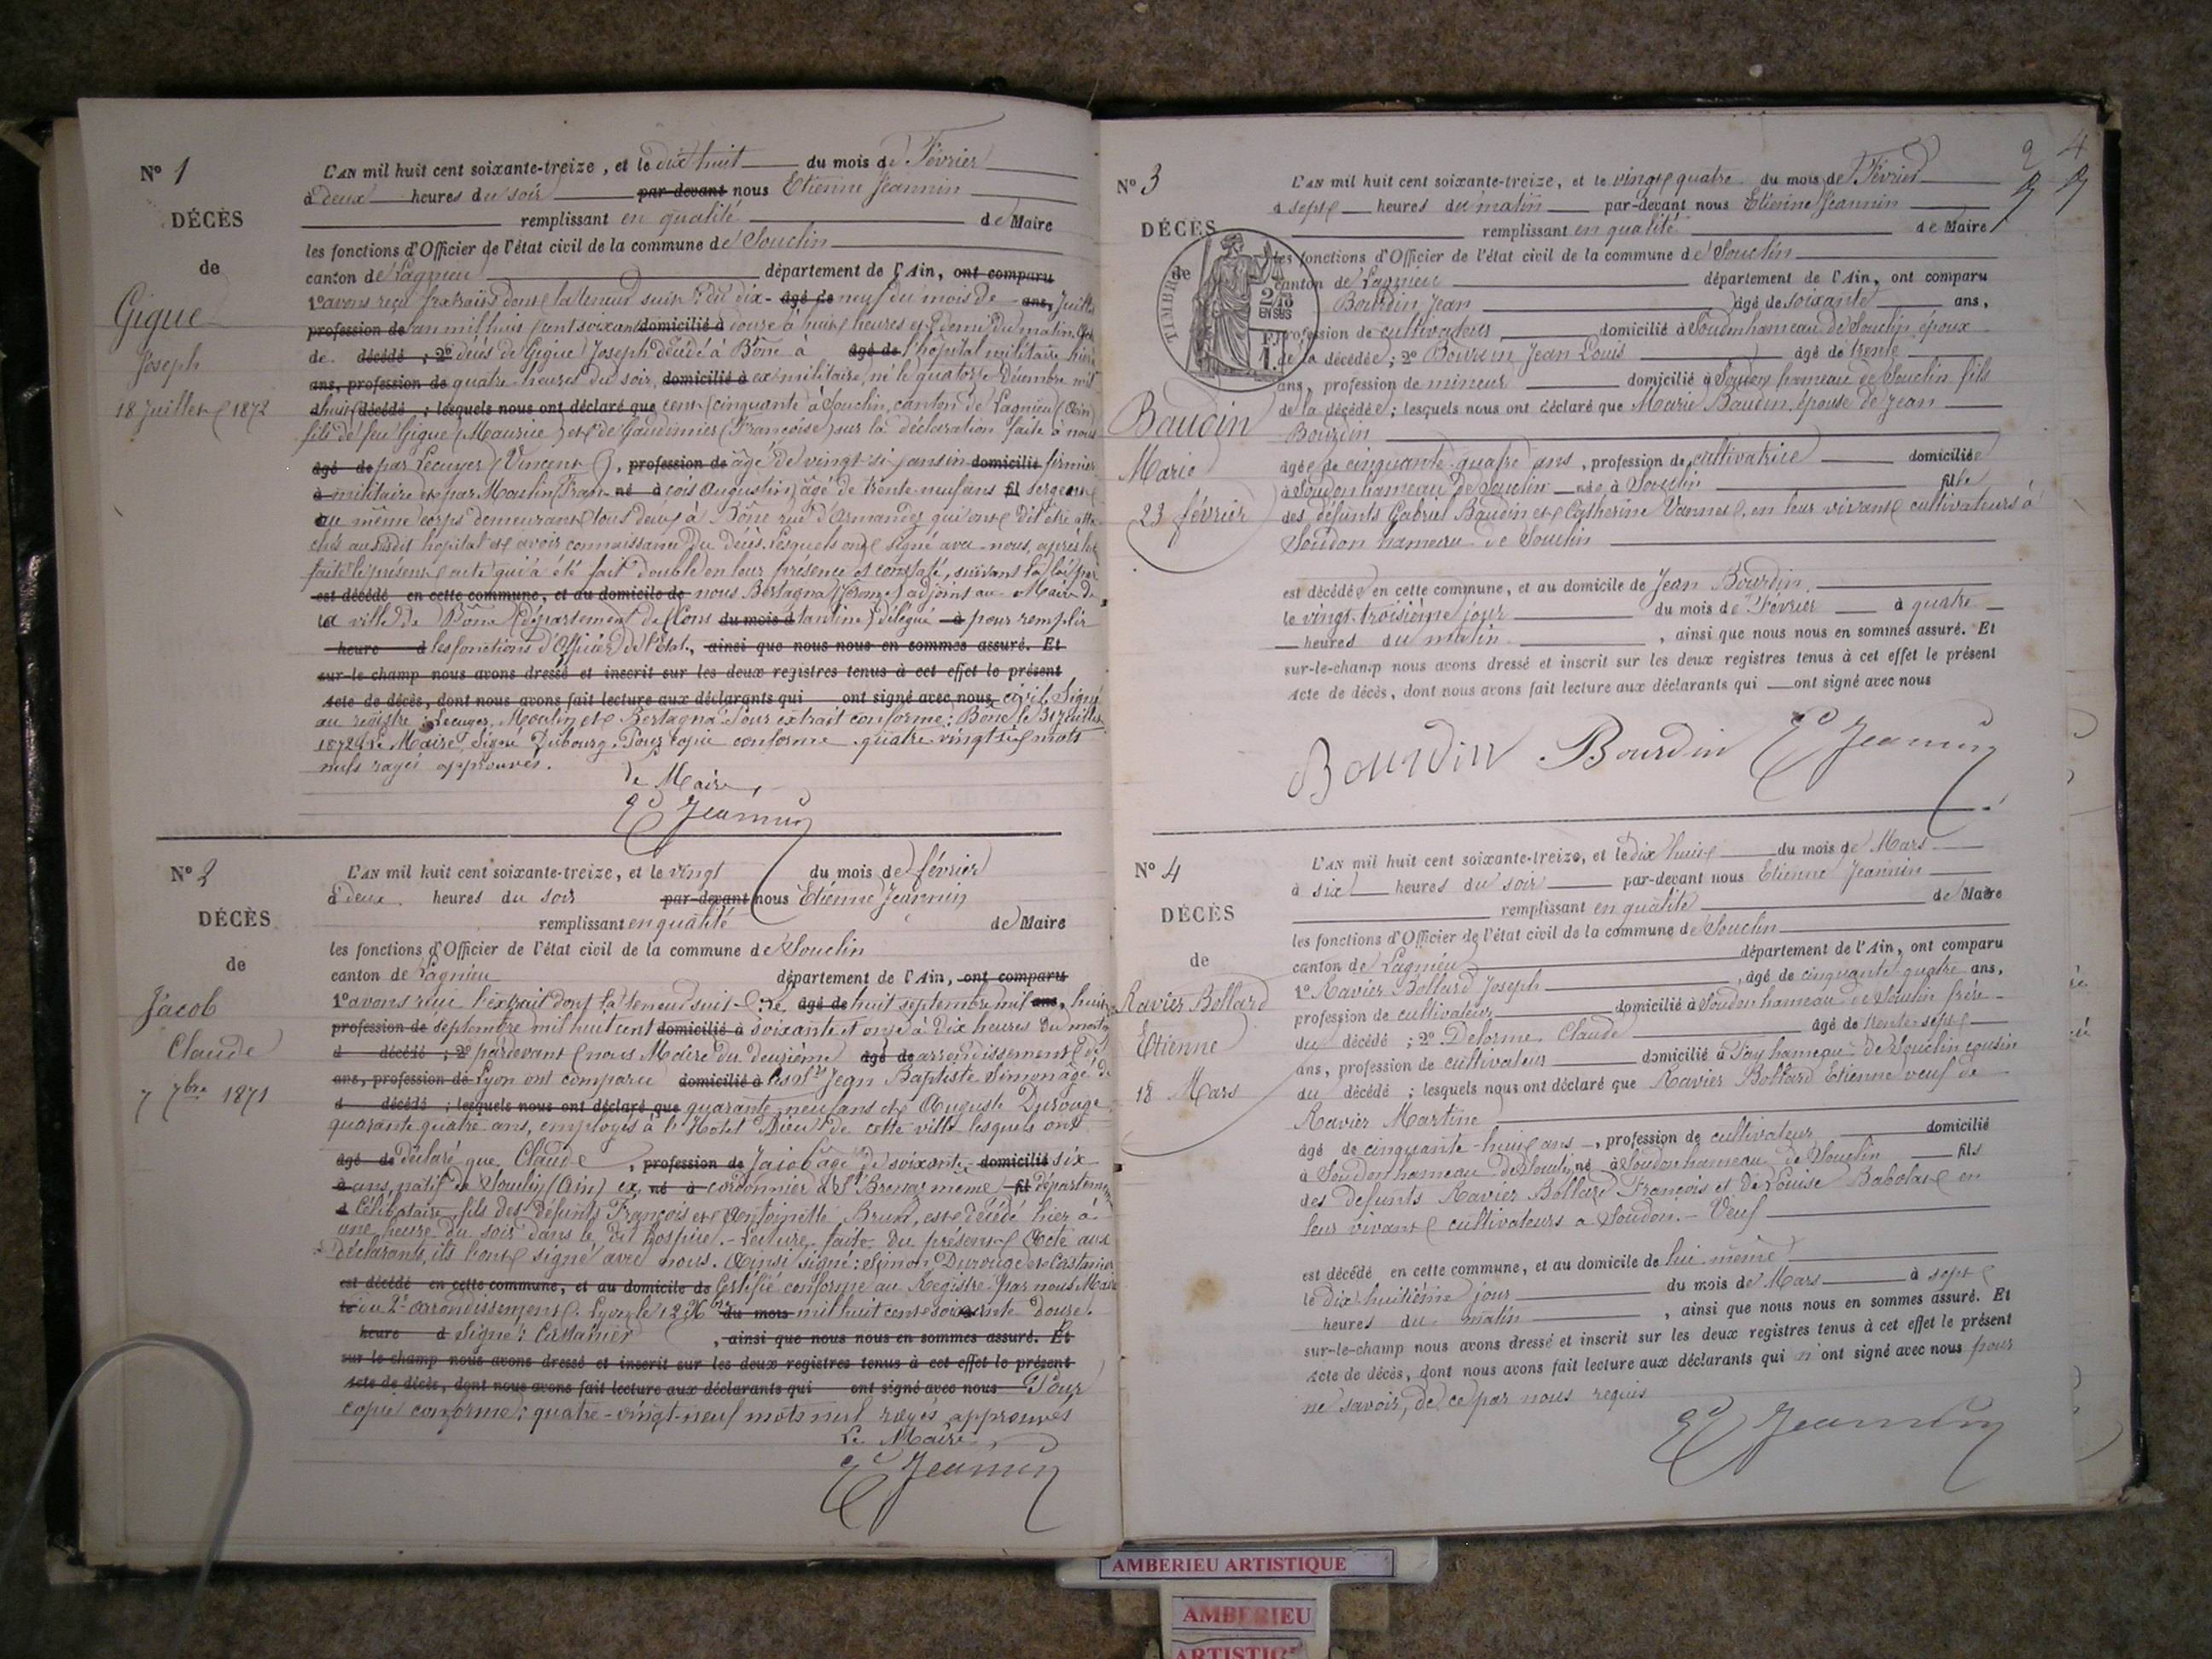 N° 1
DÉCÈS
de
Gigue
Joseph
18 Juillet 1872
L'AN mil huit cent soixante-treize, et le dix huit du mois de Février
à deux heures du soir par-devant nous Etienne Jeannin
remplissant en qualité de Maire
les fonctions d'Officier de l'état civil de la commune de Souclin
canton de Lagnieu département de l'Ain, ont comparu
1° avons reçu l'extrait dont la teneur suit : du dix- âgé de neuf du mois de ans, Juillet
profession de l'an mil huit cent soixante domicilié à douze à huit heures et demie du matin. Acte
de décédé ; 2° décès de Gigue Joseph décédé à Bône à âgé de l'hôpital militaire hier
ans, profession de quatre heures du soir, domicilié à ex militaire, né le quatorze Décembre mil
huit décédé ; lesquels nous ont déclaré que cent cinquante à Souclin, canton de Lagnieu (Ain)
fils de feu Gigue (Maurice) et de Gaudinier (Françoise) sur la déclaration faite à nous
âgé de par Lecuyer (Vincent), profession de âgé de vingt-six ans in- domicilié firmier
à militaire et par Moulin Fran- né à çois Augustin, âgé de trente neuf ans fil sergent
au même corps demeurant tous deux à Bône rue d'Armandy qui ont dit être atta
chés au susdit hopital et avoir connaissance du décès. Lesquels ont signé avec nous, après lec
faite le présent acte qui a été fait double en leur présence et constaté, suivant la loi par
est décédé en cette commune, et au domicile de nous Bertagna (Jérome) adjoint au Maire de
la ville de Bône (département de Cons du mois d tantine) délégué à pour remplir
heure d les fonctions d'Officier de l'Etat, ainsi que nous nous en sommes assuré. Et
sur-le-champ nous avons dressé et inscrit sur les deux registres tenus à cet effet le présent
acte de décès, dont nous avons fait lecture aux déclarants qui ont signé avec nous civil. Signé
au registre : Lecuyer, Moulin et Bertagna Pour extrait conforme : Bône le 31 Juillet
1872. Le Maire, Signé Dubourg. Pour copie conforme quatre vingt six mots
nuls rayés approuvés.
Le Maire,
Et Jeannin
N° 2
DÉCÈS
de
Jacob
Claude
7 7bre 1871
L'AN mil huit cent soixante-treize, et le vingt du mois de février
à deux heures du soir par-devant nous Etienne Jeannin
remplissant en qualité de Maire
les fonctions d'Officier de l'état civil de la commune de Souclin
canton de Lagnieu département de l'Ain, ont comparu
1° avons reçu l'extrait dont la teneur suit : Le âgé de huit septembre mil ans, huit
profession de septembre mil huit cent domicilié à soixante et onze à dix heures du matin
d décédé ; 2° pardevant nous Maire du deuxième âgé de arrondissement de
ans, profession de Lyon ont comparu domicilié à les Srs Jean Baptiste Simon âgé de
d décédé ; lesquels nous ont déclaré que quarante neuf ans et Auguste Durouge
quarante quatre ans, employés à l'Hotel Dieu de cette ville lesquels ont
âgé de déclaré que Claude, profession de Jacob âgé de soixante domicilié six
à ans, natif de Souclin (Ain) ex né à cordonnier à St Brenas même fil départemen
à célibataire, fils des défunts François et Antoinette Brunet, est décédé hier à
une heure du soir dans le dit hospice. - Lecture faite du présent acte aux
déclarants, ils l'ont signé avec nous. Ainsi signé : Simon Durouge et Castanier
est décédé en cette commune, et au domicile de Certifié conforme au Registre par nous Maire
le du 2e arrondissement. Lyon, le 12 Xbre du mois mil huit cent soixante douze.
heure d Signé : Castanier, ainsi que nous nous en sommes assuré. Et
sur-le-champ nous avons dressé et inscrit sur les deux registres tenus à cet effet le présent
acte de décès, dont nous avons fait lecture aux déclarants qui ont signé avec nous Pour
copie conforme : quatre-vingt-neuf mots nul rayés approuvés
Le Maire,
Et Jeannin
2 4
N° 3
DÉCÈS
de
TIMBRE
2/10 EN SUS
1 F.
Baudin
Marie
23 février
L'AN mil huit cent soixante-treize, et le vingt quatre du mois de Février
à sept heures du matin par-devant nous Etienne Jeannin
remplissant en qualité de Maire
les fonctions d'Officier de l'état civil de la commune de Souclin
canton de Lagnieu département de l'Ain, ont comparu
Bourdin Jean âgé de soixante ans,
profession de cultivateur domicilié à Soudon hameau de Souclin époux
de la décédée ; 2° Bourdin Jean Louis âgé de trente
ans, profession de mineur domicilié à Soudon hameau de Souclin fils
de la décédée ; lesquels nous ont déclaré que Marie Baudin, épouse de Jean
Bourdin
âgée de cinquante quatre ans, profession de cultivatrice domiciliée
à Soudon hameau de Souclin née à Souclin fille
des défunts Gabriel Baudin et Catherine Vannet, en leur vivant cultivateurs à
Soudon hameau de Souclin
est décédée en cette commune, et au domicile de Jean Bourdin
le vingt troisième jour du mois de Février à quatre
heures du matin, ainsi que nous nous en sommes assuré. Et
sur-le-champ nous avons dressé et inscrit sur les deux registres tenus à cet effet le présent
acte de décès, dont nous avons fait lecture aux déclarants qui ont signé avec nous
Bourdin Bourdin Et Jeannin
N° 4
DÉCÈS
de
Ravier Bollard
Etienne
18 Mars
L'AN mil huit cent soixante-treize, et le dix huit du mois de Mars
à six heures du soir par-devant nous Etienne Jeannin
remplissant en qualité de Maire
les fonctions d'Officier de l'état civil de la commune de Souclin
canton de Lagnieu département de l'Ain, ont comparu
1° Ravier Bollard Joseph, âgé de cinquante quatre ans,
profession de cultivateur domicilié à Soudon hameau de Souclin frère
du décédé ; 2° Delorme Claude âgé de trente sept
ans, profession de cultivateur domicilié à Fay hameau de Souclin cousin
du décédé ; lesquels nous ont déclaré que Ravier Bollard Etienne veuf de
Ravier Martine
âgé de cinquante-huit ans, profession de cultivateur domicilié
à Soudon hameau de Souclin né à Soudon hameau de Souclin fils
des defunts Ravier Bollard François et de Louise Babolat en
leur vivant cultivateurs a Soudon. - Veuf
est décédé en cette commune, et au domicile de lui même
le dix huitième jour du mois de Mars à sept
heures du matin, ainsi que nous nous en sommes assuré. Et
sur-le-champ nous avons dressé et inscrit sur les deux registres tenus à cet effet le présent
acte de décès, dont nous avons fait lecture aux déclarants qui n'ont signé avec nous pour
ne savoir, de ce par nous requis
Et Jeannin
AMBERIEU ARTISTIQUE
AMBERIEU
ARTISTIQUE